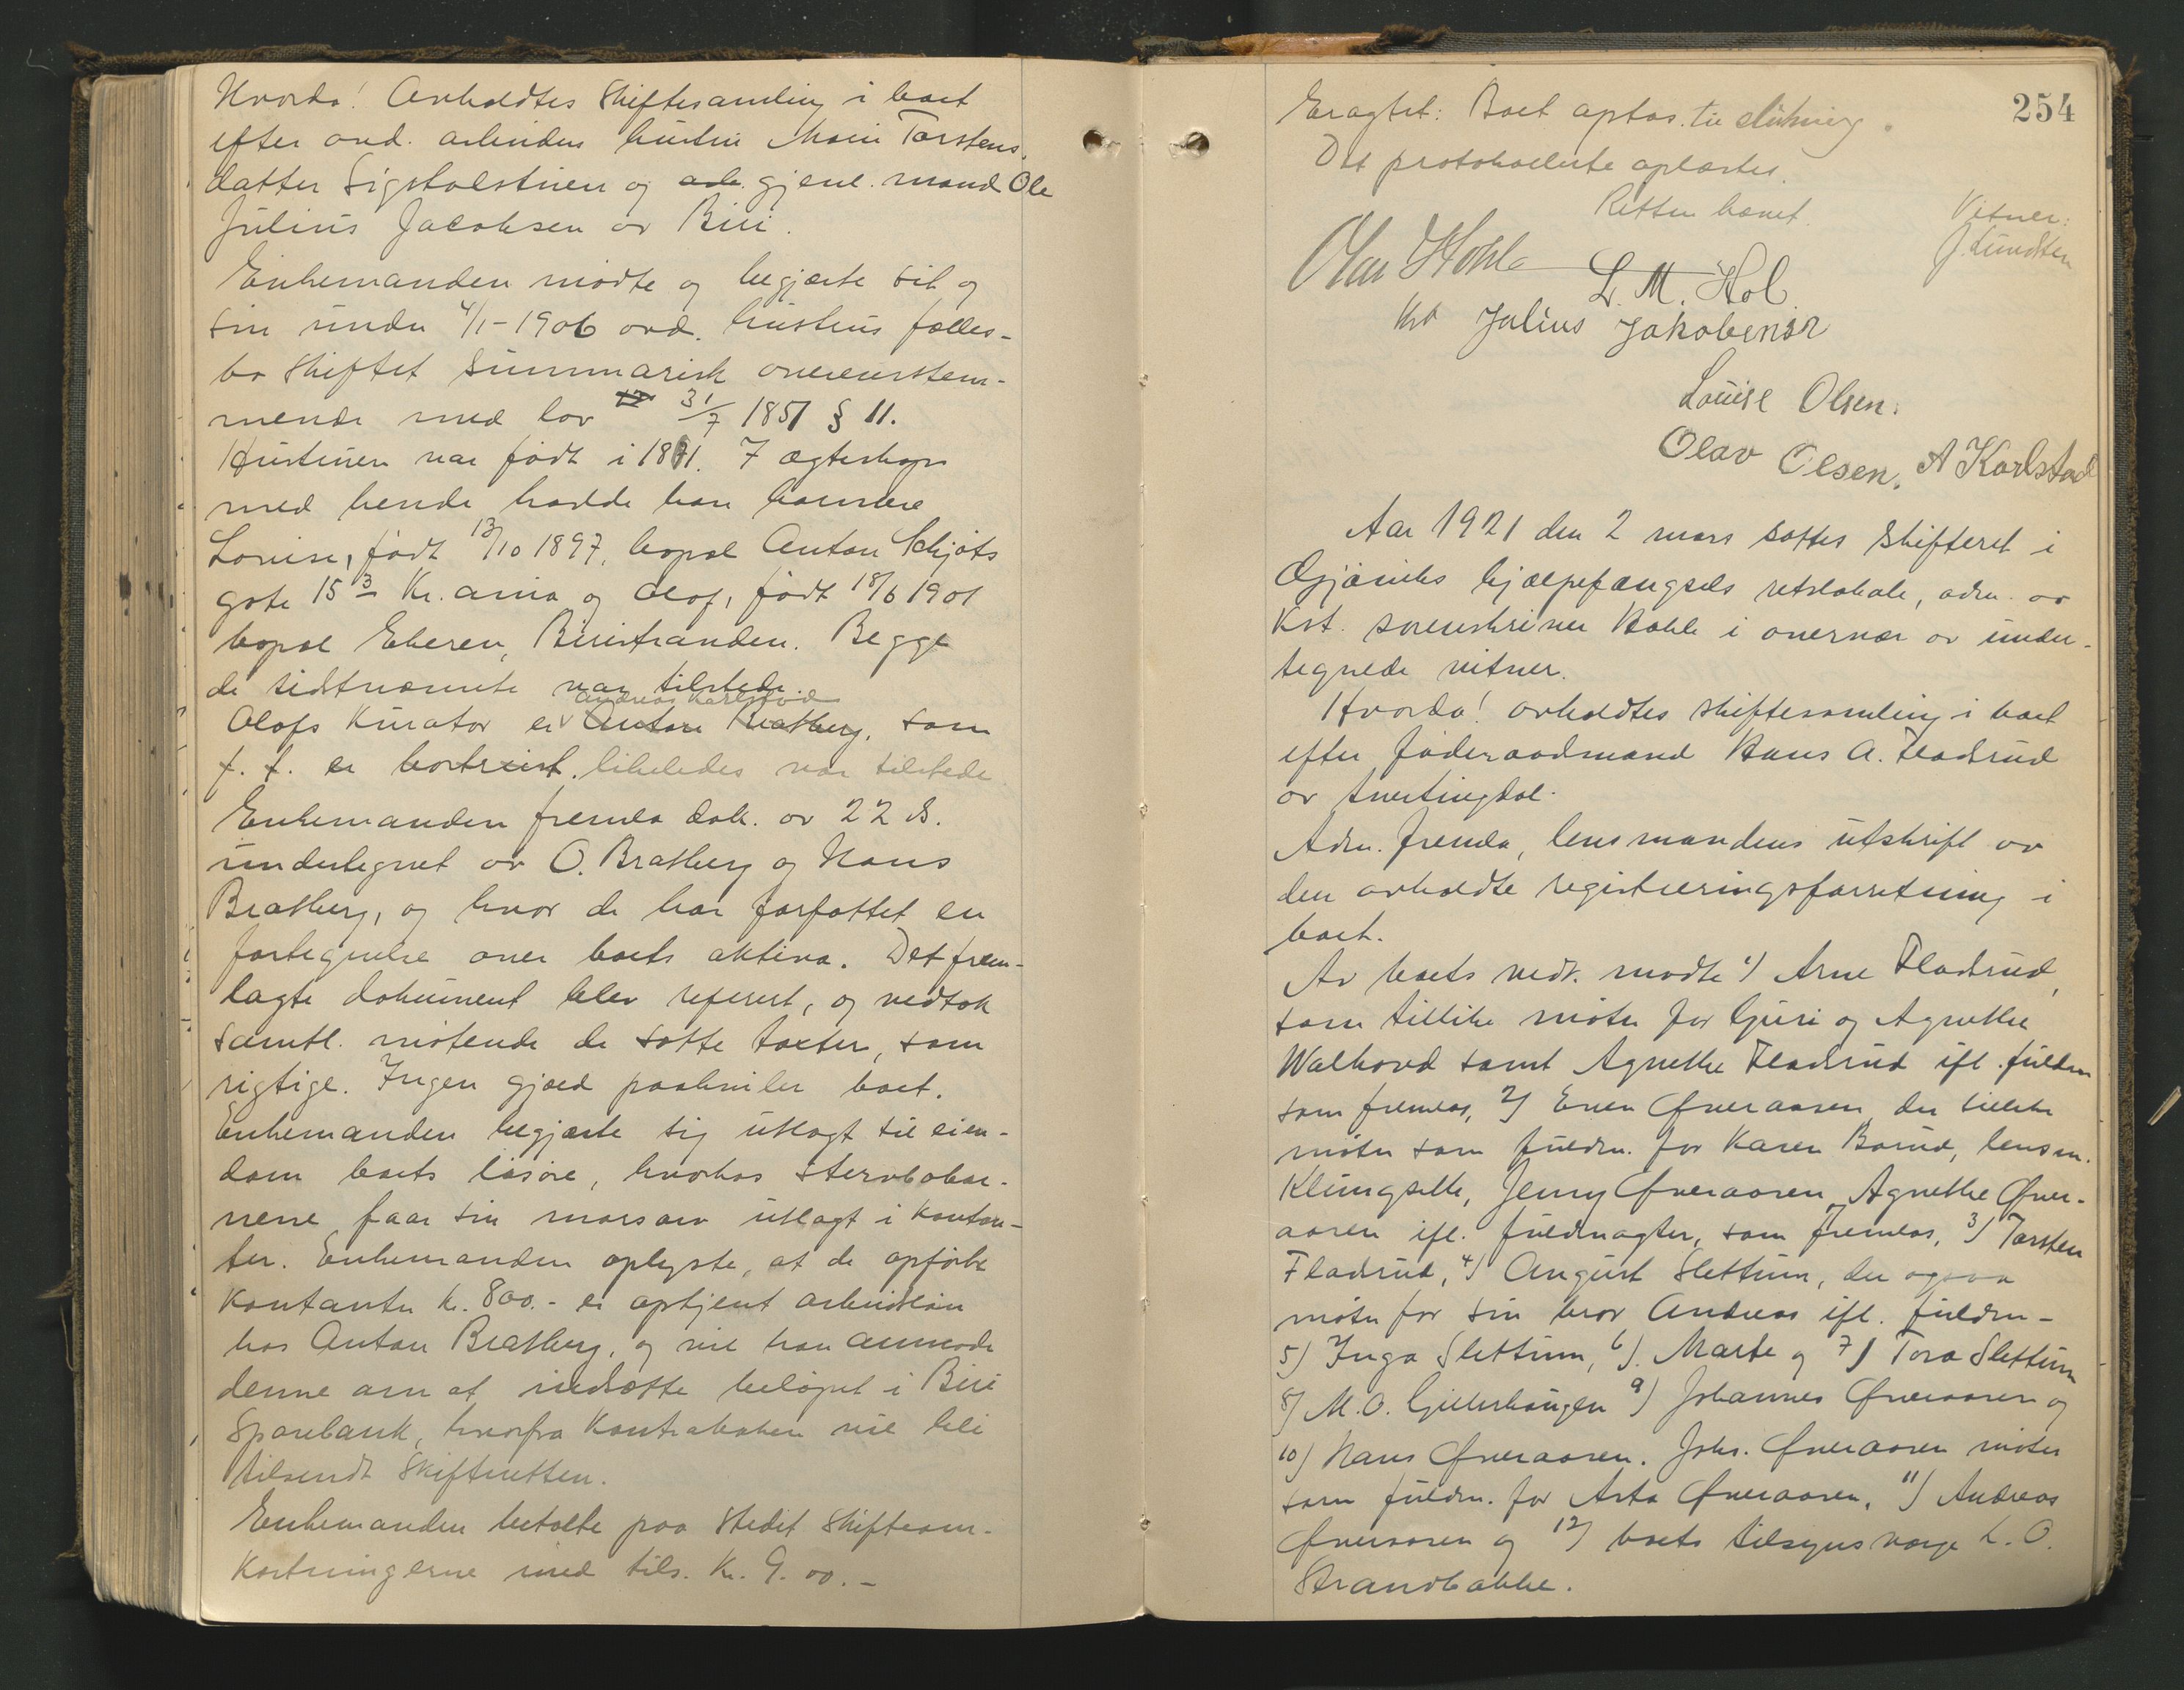 Hvorda! Avholdtes Skiftesamling i boet
efter avd. arbeider hustru Marie Torstens.
datter Sigstadstuen og arb. gjenl. mand Ole
Julius Jacobsen av Biri.
Enkemanden mødte og begjærte sit og
sin under 4/1-1906 avd. hustrus fælles-
bo skiftet summarisk overensstem-
mende med lov 31/7 1851 § 11.
Hustruen var født i 1871. I ægteskap
med hende hadde han barnene
Louise, født 13/10 1897, bopæl Anton Schjøts
gate 15 3 Kr.ania og Olof, født 18/6 1901
bopæl Ekeren, Biristranden. Begge
de sidstnævnte var tilstede.
Andreas Karlstad
Olofs Kurator er Anton Bratberg, som
f. t. er bortreist. likeledes var tilstede
Enkemanden fremla dok. av 22 ds.
undertegnet av O. Bratberg og Hans
Bratberg, og hvor de har forfattet en
fortegnelse over boets aktiva. Det frem-
lagte dokument blev referert, og vedtok
samtl. møtende de satte takster, som
rigtige. Ingen gjæld paahviler boet.
Enkemanden begjærte sig utlagt til eien-
dom boets løsøre, hvorhos stervbobar-
nene faar sin morsarv utlagt i kontan-
ter. Enkemanden oplyste, at de opførte
kontanter kr. 800.- er optjent arbeidsløn
hos Anton Bratberg, og vil han anmode
denne om at indsætte beløpet i Biri
Sparebank, hvorfra Kontraboken vil bli
tilsendt Skifteretten.
Enkemanden betalte paa stedet skifteom-
kostningerne med tils. kr. 9.00.-
254
Eragtet: Boet optas til slutning.
Det protokollerte oplæstes.
Retten hævet.
Vitner:
J. Lundsten
Olav Hohle
L. M. Hol.
Julius Jakobensen
Louise Olsen.
Olav Olsen. A Karlstad
Aar 1921 den 2 mars sattes skifteret i
Gjøviks hjælpefængsels retslokale, adm. av
Kst. sorenskriver Hohle i overvær av under-
tegnede vitner.
Hvorda! avholdtes skiftesamling i boet
efter føderaadmand Hans A. Fladsrud
av Snertingdal.
Adm. fremla, lensmandens utskrift av
den avholdte registreringsforretning i
boet.
Av boets vedk. mødte 1) Arne Fladsrud,
som tillike møter for Guri og Agnethe
Walhovd samt Agnethe Fladsrud ifl. fuldm
som fremlas, 2) Even Øveraasen, der tillike
møter som fuldm. for Karen Borud, lensm.
Klungseth, Jenny Øveraasen, Agnethe Øver-
aasen ifl. fuldmagter, som fremlas, 3) Torsten
Fladsrud, 4) August Slettum, der ogsaa
møter for sin bror Andreas ifl. fuldm-
5) Inga Slettum, 6) Marte og 7) Tora Slettum
8) M. O. Gjelerhaugen 9) Johannes Øveraasen og
10) Hans Øveraasen. Johs. Øveraasen møter
som fuldm. for Asta Øveraasen, 11) Andreas
Øveraasen og 12) boets tilsynsværge L. O.
Strandbakke.